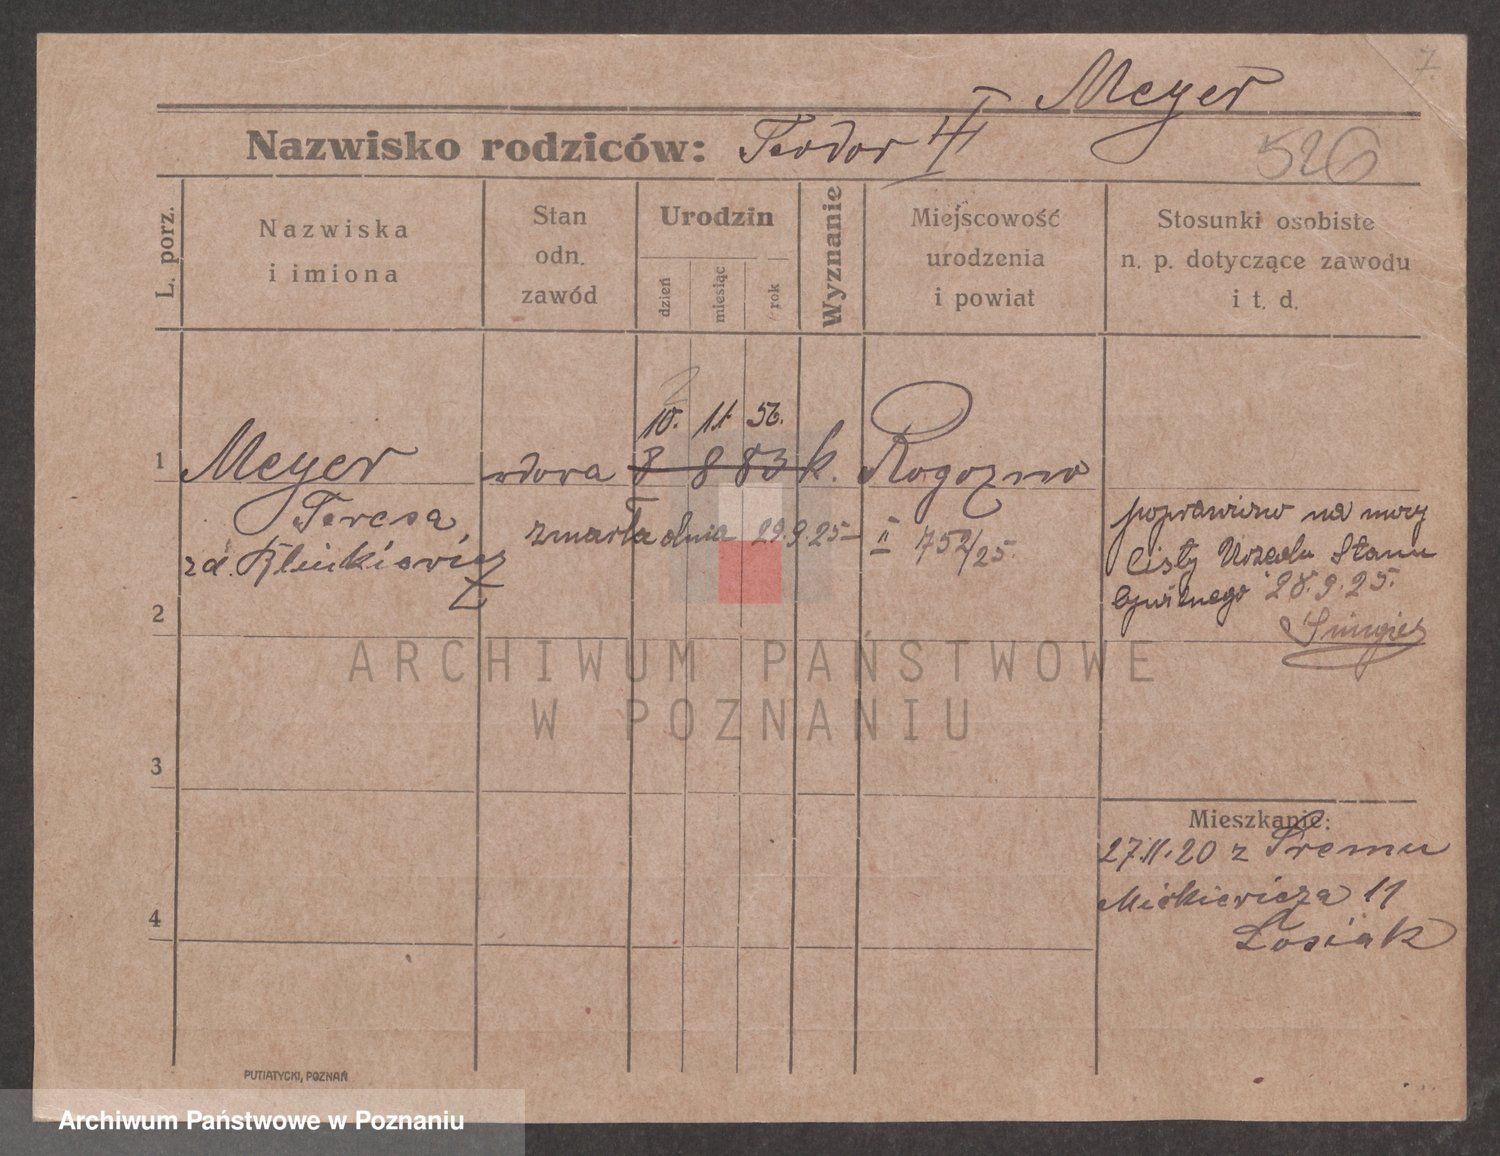 7.
Meyer
Nazwisko rodziców: Teodor
526
L. porz.
Nazwiska
i imiona
Stan
odn.
zawód
Urodzin
dzień
miesiąc
rok
Wyznanie
Miejscowość
urodzenia
i powiat
Stosunki osobiste
n. p. dotyczące zawodu
i t. d.
10. 11 56.
1 Meyer wdowa 8 8 83 k. Rogozno
Teresa
zmarła dnia 29.9.25 II 752/25.
poprawiono na mocy
listy Urzędu Stanu
Cywilnego 28.9.25.
2
3
4
ARCHIWUM PAŃSTWOWE
W POZNANIU
Mieszkanie:
27.11.20 z Śremu
Mickiewicza 11
Łosiak
PUTIATYCKI, POZNAŃ
Archiwum Państwowe w Poznaniu